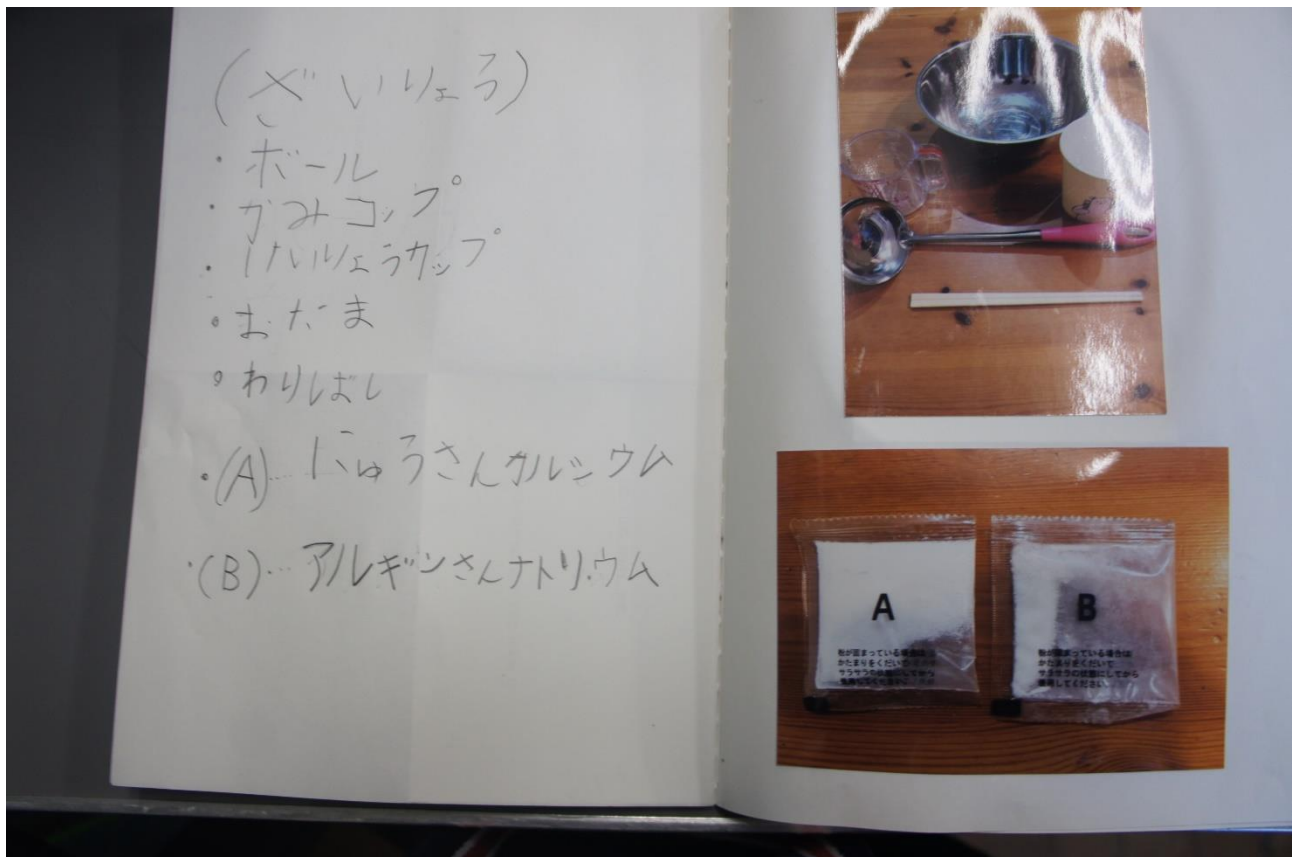 (ざいりょう)
・ボール
・かみコップ
・けいりょうカップ
・おたま
・わりばし
・(A)…にゅうさんカルシウム
・(B)…アルギンさんナトリウム
A
粉が固まっている場合は
かたまりをくだいて
サラサラの状態にしてから
使用してください。
B
粉が固まっている場合は
かたまりをくだいて
サラサラの状態にしてから
使用してください。